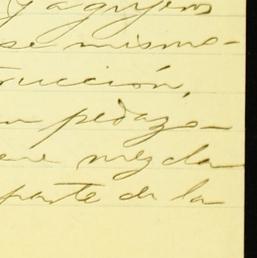 y agujeros
ese mismo-
trucción,
un pedazo-
ene mezcla
parte de la